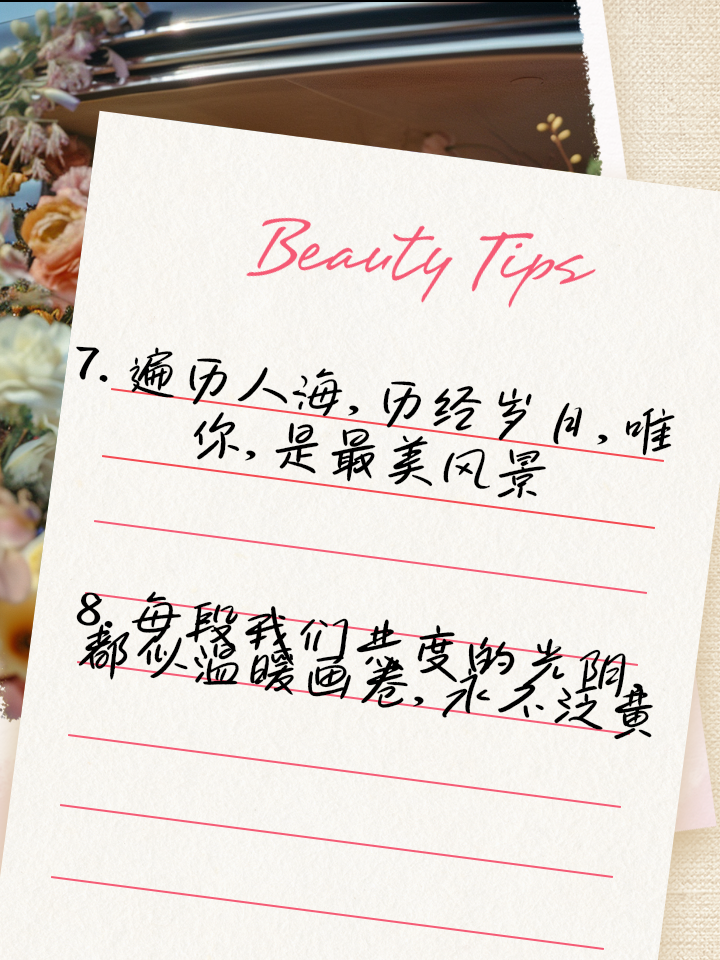 Beauty Tips
7. 遍历人海，历经岁月，唯
你，是最美风景
8. 每段我们共度的光阴，
都似温暖画卷，永不泛黄